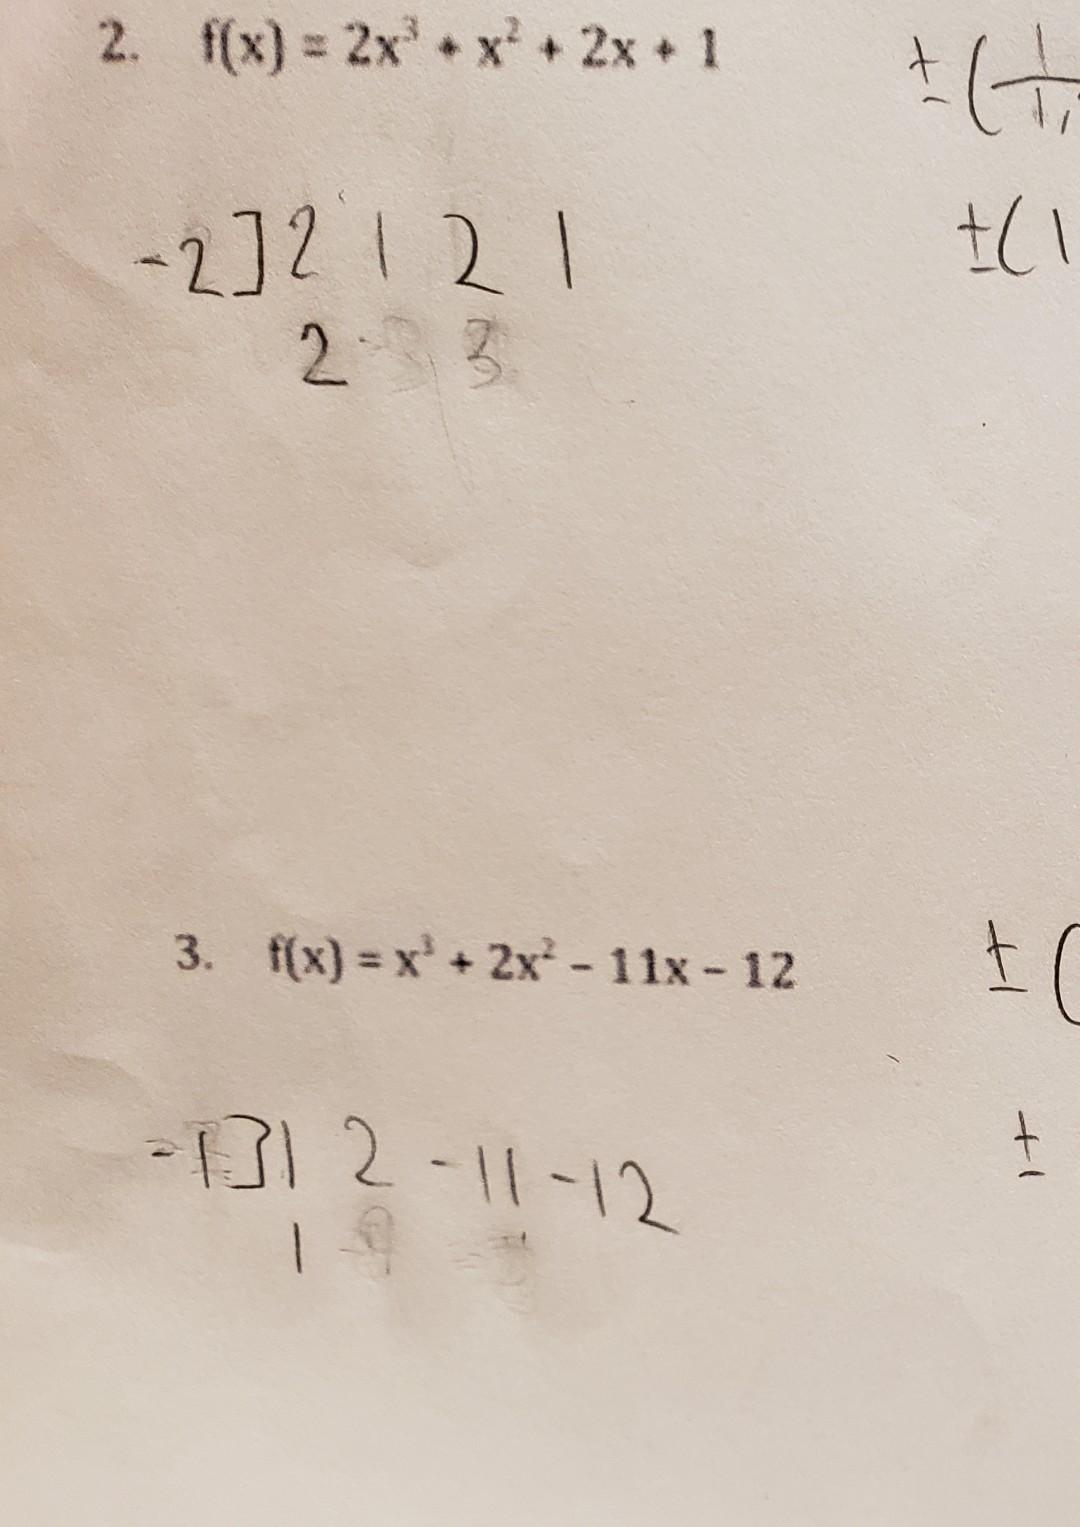 2. f(x) = 2x³ + x² + 2x + 1
± ( 1 / 1,
-2] 2 1 2 1
± ( 1
2 3
3. f(x) = x³ + 2x² - 11x - 12
± (
-1] 1 2 -11 -12
±
1